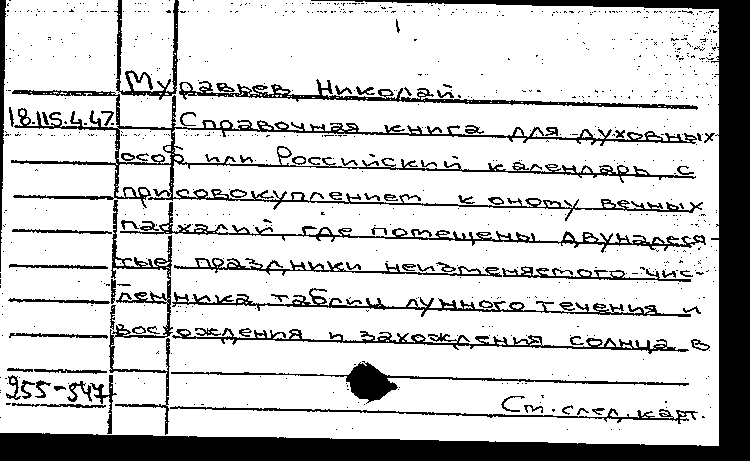 Муравьев, Николай.
18.115.4.47
Справочная книга для духовных
особ, или Российский календарь, с
присовокуплением к оному вечных
пасхалий, где помещены двунадеся-
тые праздники неизменяемого чис-
ленника, таблиц лунного течения и
восхождения и захождения солнца в
955-547
См. след. карт.